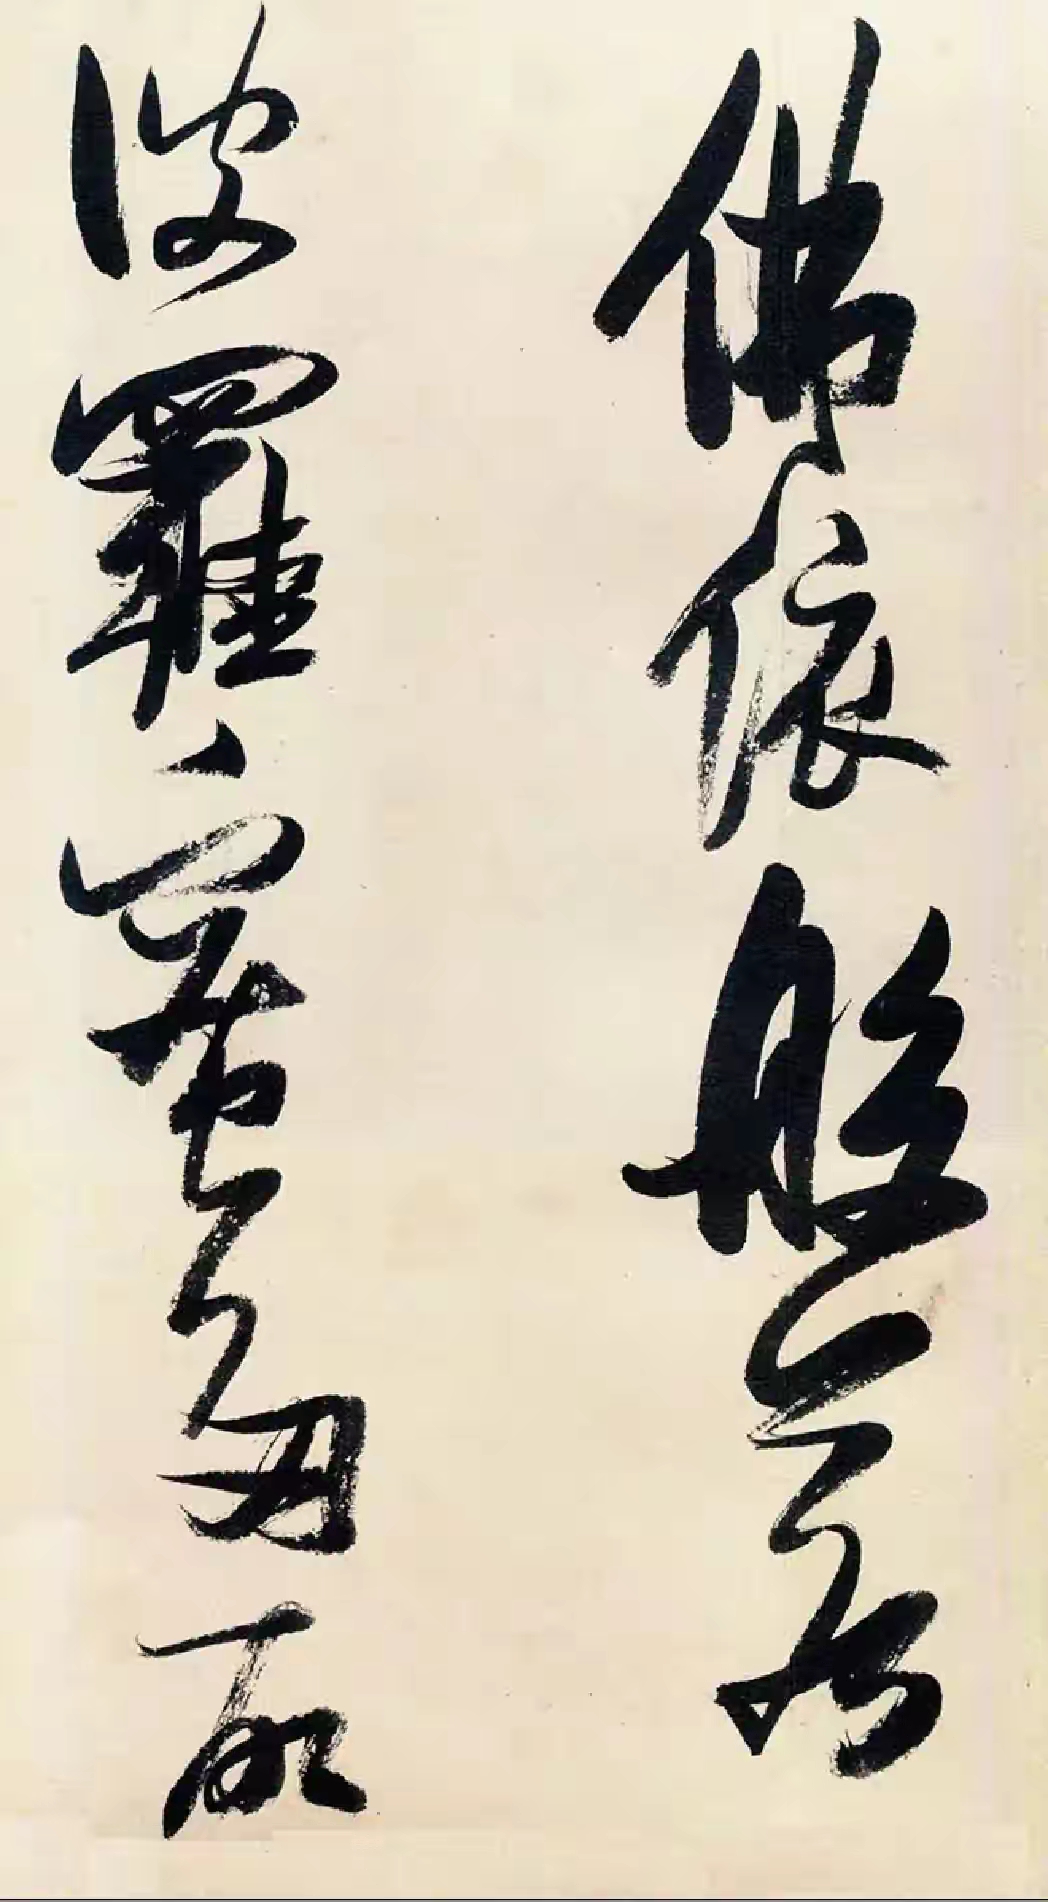 佛依般若
波羅蜜多故